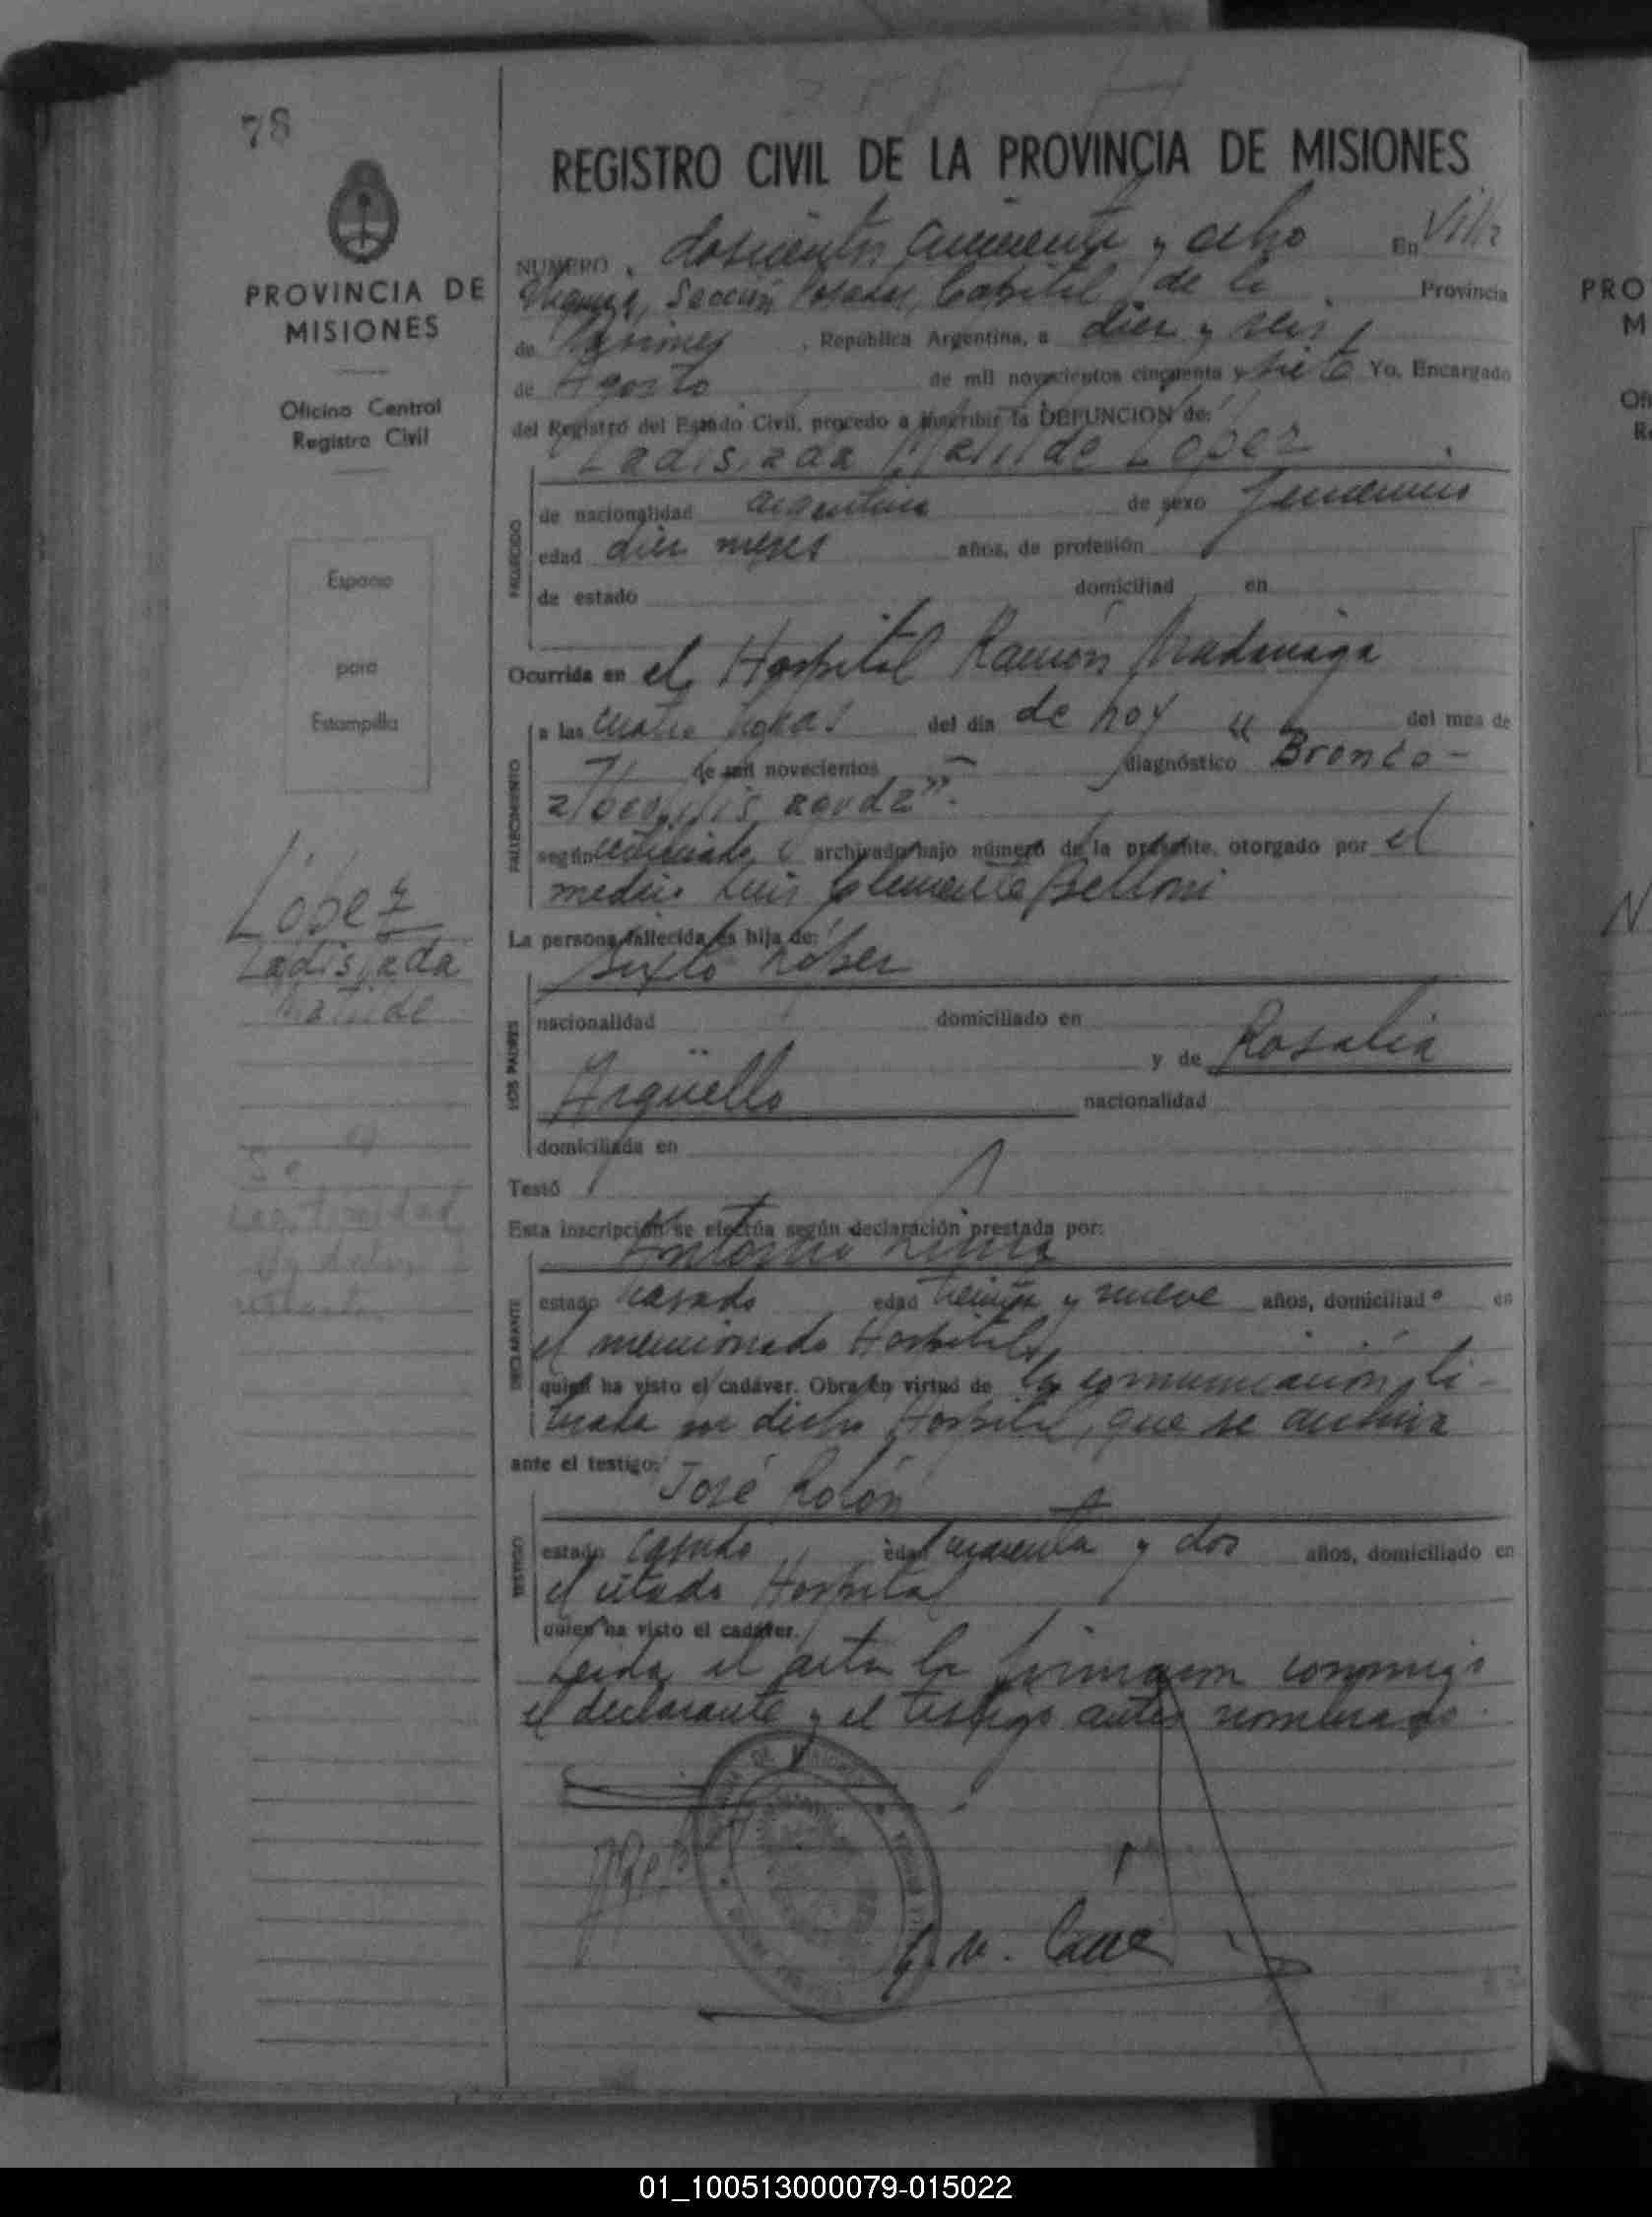 78
REGISTRO CIVIL DE LA PROVINCIA DE MISIONES
PROVINCIA DE
MISIONES
Oficina Central
Registro Civil
Espacio
para
Estampilla
López
Ladislada
Matilde
NUMERO doscientos cincuenta y ocho En Villa
Urquiza, Sección Posadas, Capital de la Provincia
de Misiones, República Argentina, a diez y seis
de Agosto de mil novecientos cincuenta y siete Yo, Encargado
del Registro del Estado Civil, procedo a inscribir la DEFUNCION de:
Ladislada Matilde López
FALLECIDO
de nacionalidad argentina de sexo femenino
edad diez meses años, de profesión
de estado domiciliad en
Ocurrida en el Hospital Ramón Madariaga
FALLECIMIENTO
a las cuatro horas del día de hoy del mes de
de mil novecientos diagnóstico "Bronco-
aguda".
según certificado archivado bajo número de la presente, otorgado por el
médico Luis Clemente Belloni
La persona fallecida es hija de:
Sixto López
LOS PADRES
nacionalidad domiciliado en
y de Rosalia
Argüello nacionalidad
domiciliada en
Testó
Esta inscripción se efectúa según declaración prestada por:
Antonio
DECLARANTE
estado casado edad treinta y nueve años, domiciliado en
el mencionado Hospital
quien ha visto el cadáver. Obra en virtud de la comunicación li-
brada por dicho Hospital, que se archiva
ante el testigo:
José Rolón
TESTIGO
estado casado edad cuarenta y dos años, domiciliado en
el citado Hospital
quien ha visto el cadáver.
Leída el acta la firmaron conmigo
el declarante y el testigo antes nombrado.
PRO
M
Ofi
Re
N
01_100513000079-015022